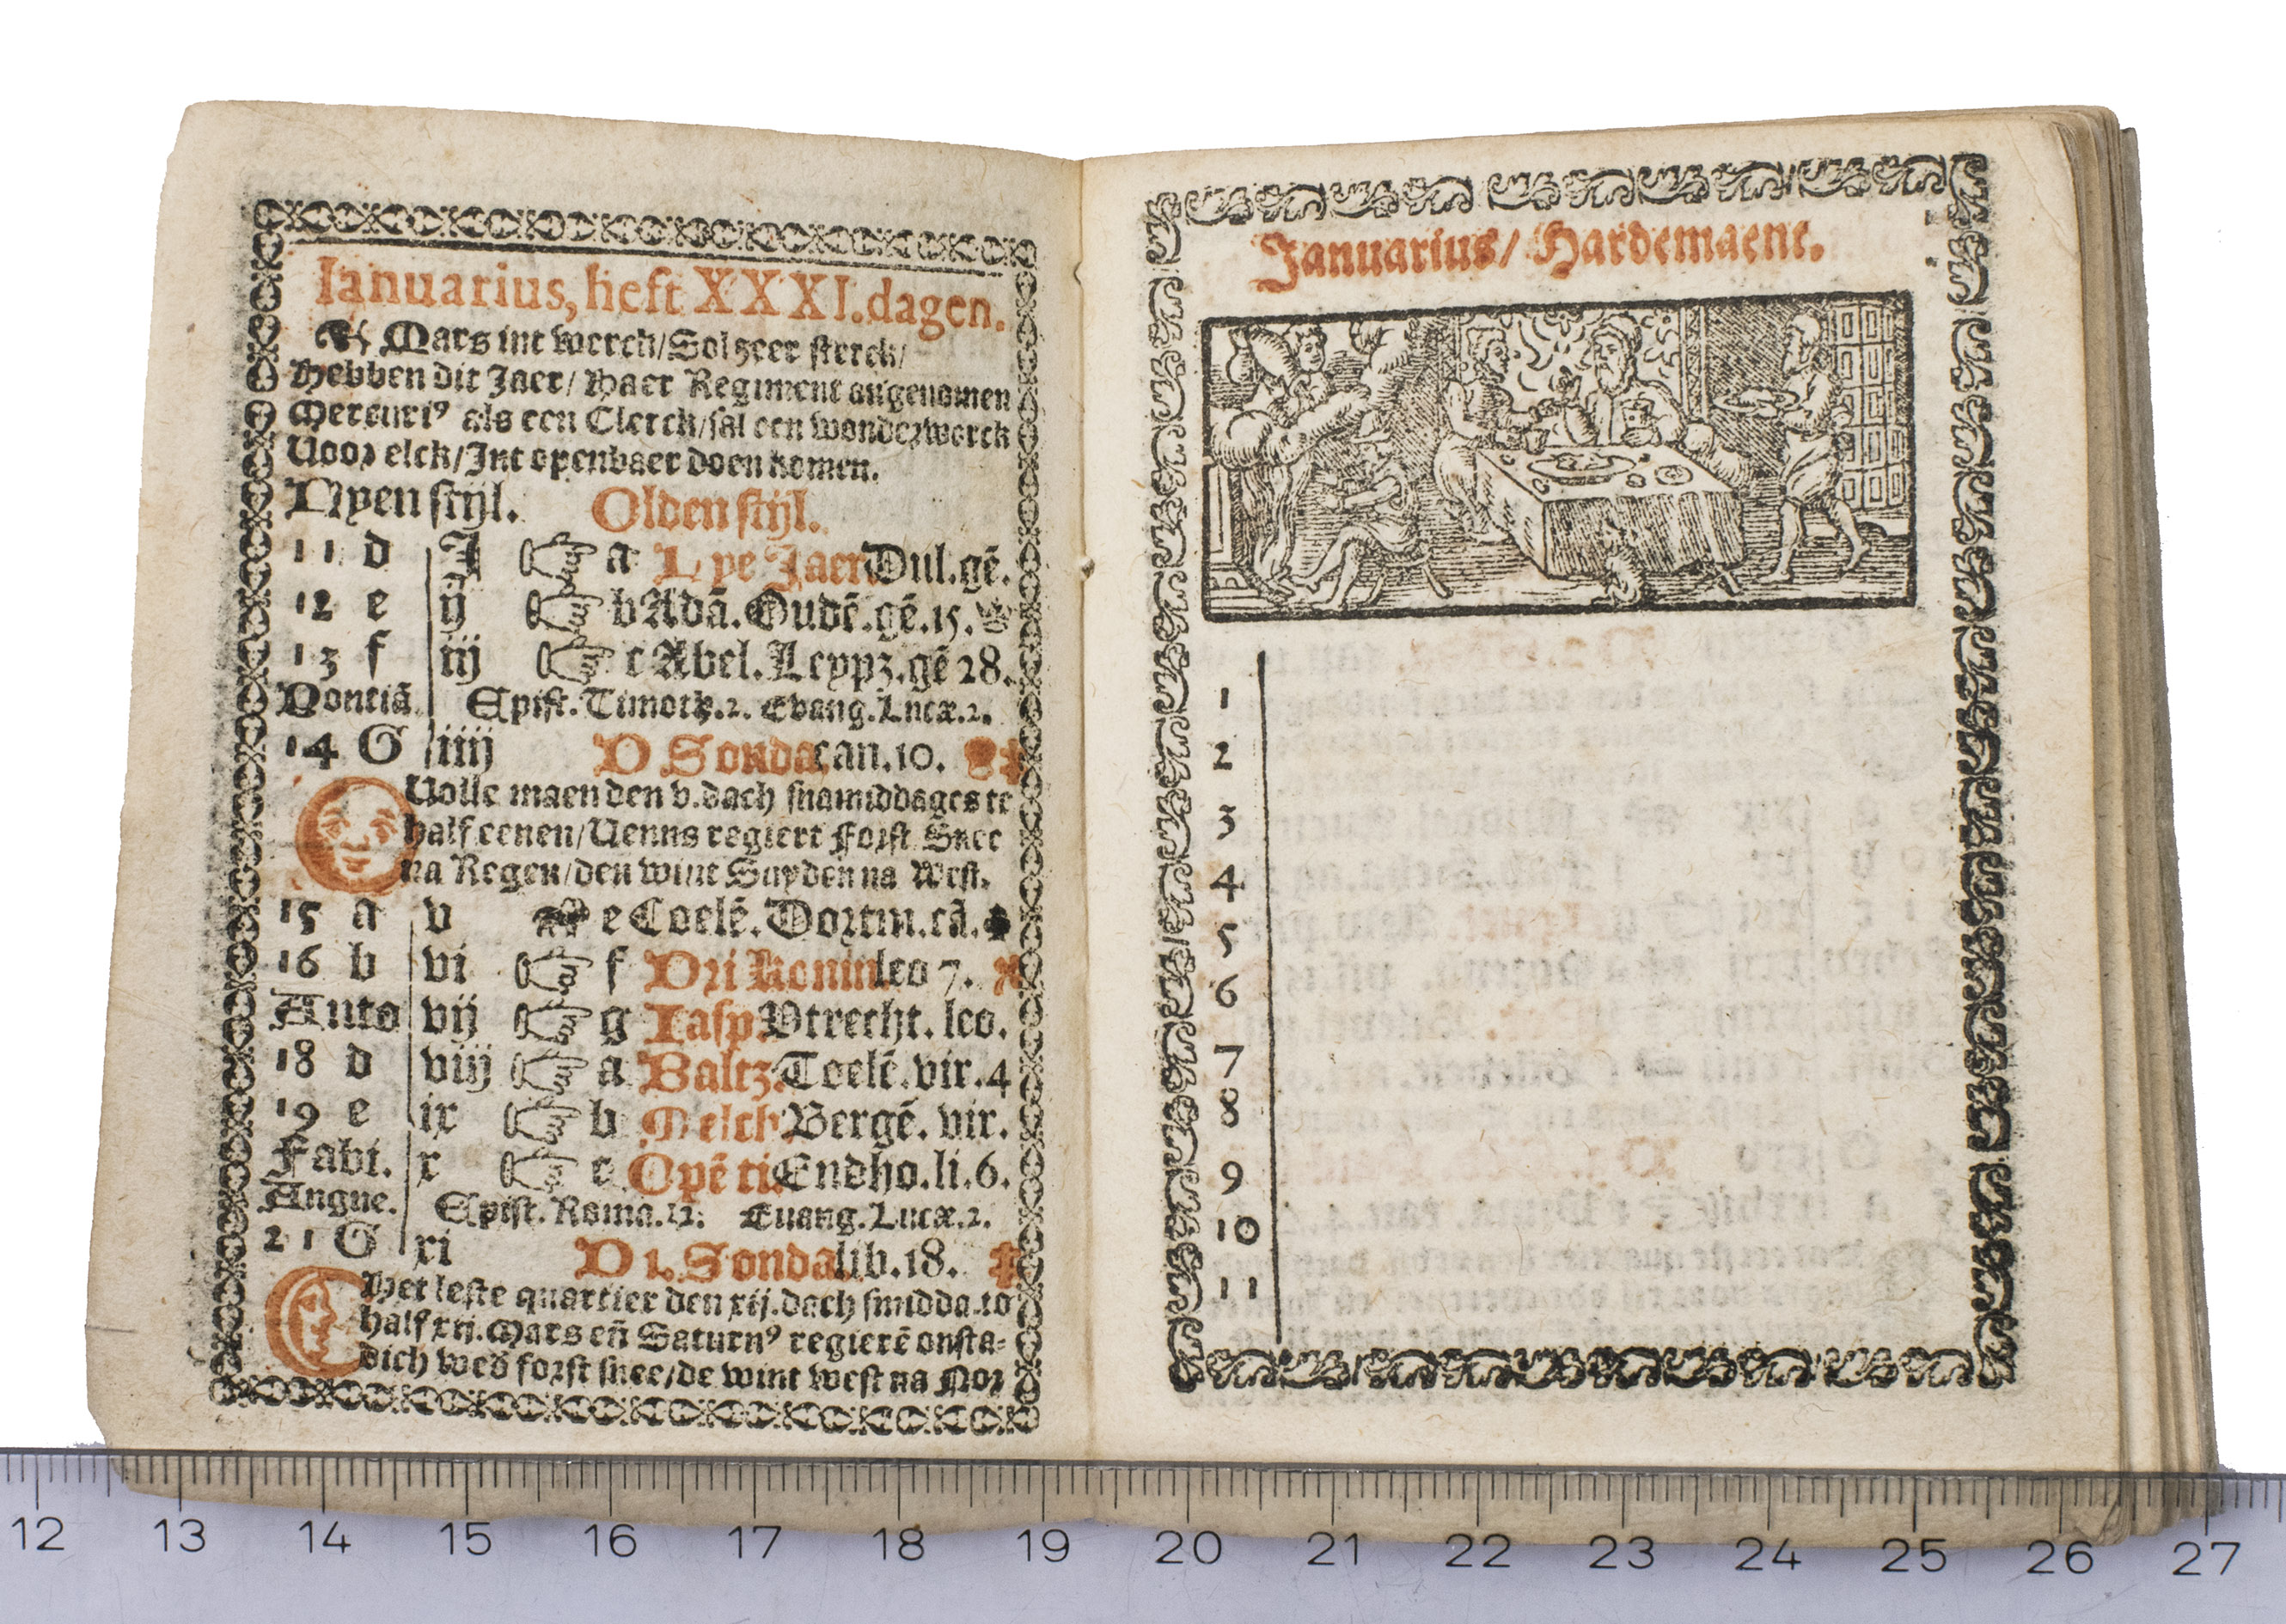 Ianuarius, heft XXXI. dagen.
Mars int werck/Sol zeer sterck/
Hebben dit Jaer/ Haer Regiment angenomen
Mercuriꝰ als een Clerck/sal een wonderwerck
Voor elck/Int openbaer doen komen.
Nyen stijl. Olden stijl.
11 d I a Nye Jaer Dul.gē.
12 e ij b Adā. Oudē.gē.15.
13 f iij c Abel. Leypz.gē 28.
Pontiā Epist. Timoth.2. Evang. Lucæ.2.
14 G iiij D Sonda can.10.
Volle maen den v.dach snamiddages te
half eenen/Venus regiert Forst Snee
na Regen/den wint Suyden na West.
15 a v e Coelē. Dortm.cā.
16 b vi f Dri Konin leo 7.
Anto vij g Iasp. Vtrecht. leo.
18 d viij a Baltz. Toelē.vir.4
19 e ix b Melch Bergē. vir.
Fabi. x c Opē ti. Endho.li.6.
Angne. Epist. Roma.12. Euang. Lucæ.2.
21 G xi D 1. Sonda lib.18.
Het leste quartier den xij.dach smidda.to
half xij. Mars eñ Saturnꝰ regierē onsta-
dich wed forst snee/de wint west na Nor
Januarius/ Hardemaent.
1
2
3
4
5
6
7
8
9
10
11
12 13 14 15 16 17 18 19 20 21 22 23 24 25 26 27